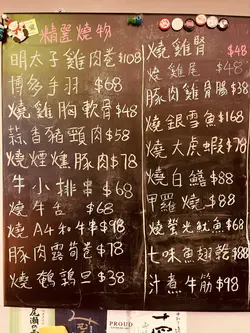 精選燒物
明太子雞肉卷$108
博多手羽 $68
燒雞胸軟骨$48
蒜香豬頸肉$58
燒煙燻豚肉$78
牛小排串$68
燒牛舌 $68
燒A4和牛串$98
豚肉露筍卷$78
燒鵪鶉旦$38
燒雞腎 $48
燒雞尾 $48
豚肉雞腸$38
燒銀雪魚$168
燒大虎蝦$78
燒白鱔$88
甲羅燒$88
燒螢光魷魚$68
七味魚翅乾$88
汁煮牛筋$98
PROUD